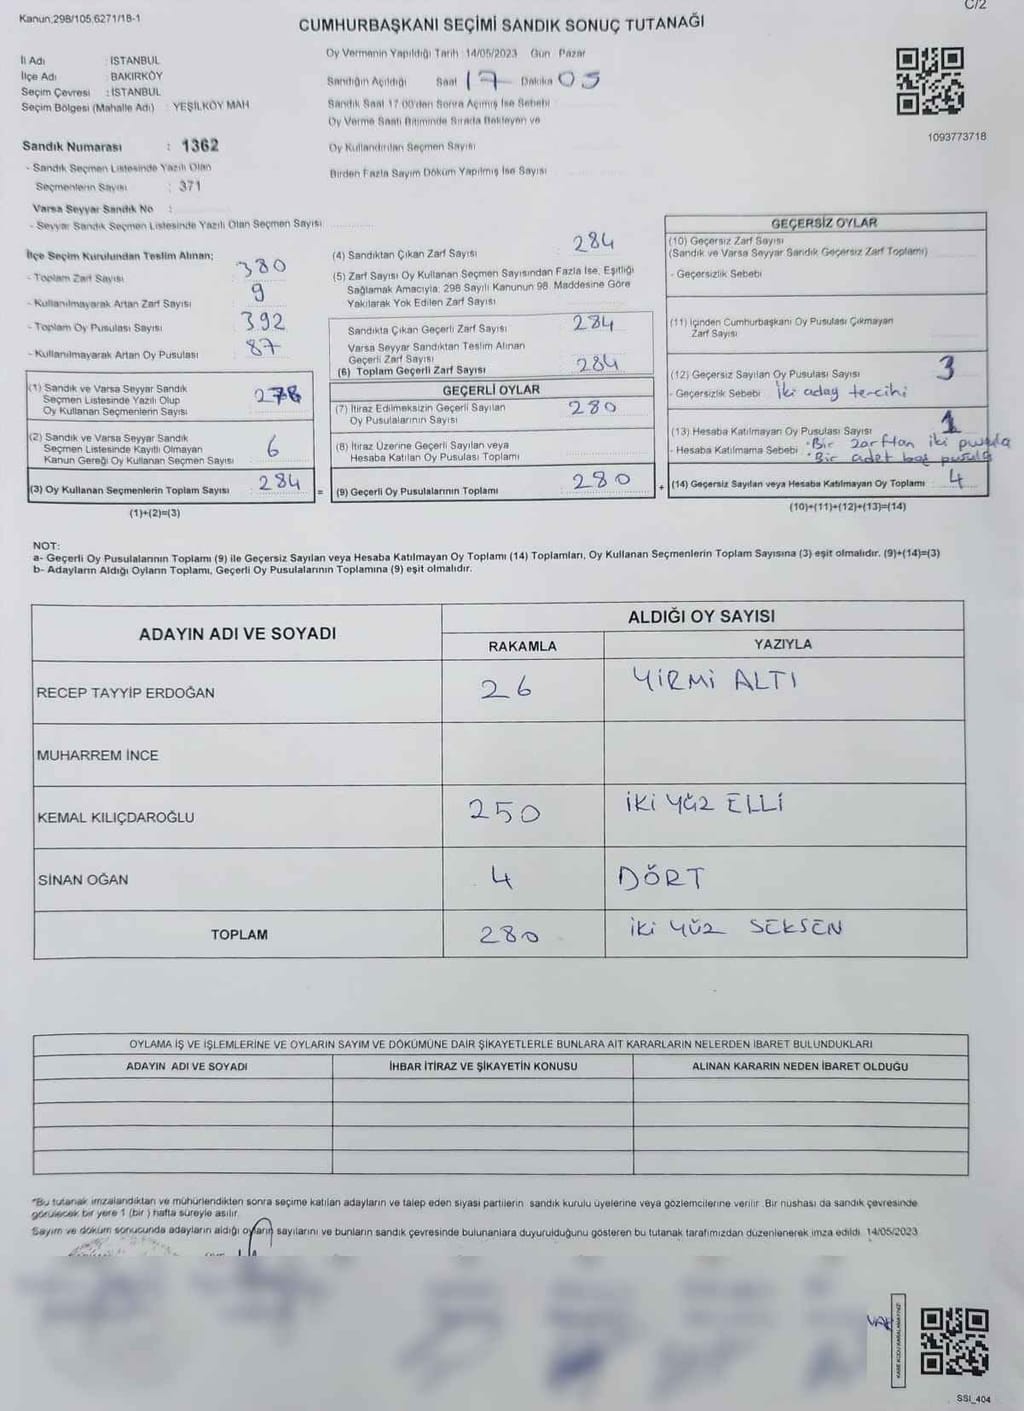 Kanun.298/105.6271/18-1
C/2
CUMHURBAŞKANI SEÇİMİ SANDIK SONUÇ TUTANAĞI
İl Adı : İSTANBUL
İlçe Adı : BAKIRKÖY
Seçim Çevresi : İSTANBUL
Seçim Bölgesi (Mahalle Adı) : YEŞİLKÖY MAH
Sandık Numarası : 1362
- Sandık Seçmen Listesinde Yazılı Olan
Seçmenlerin Sayısı : 371
Varsa Seyyar Sandık No :
- Seyyar Sandık Seçmen Listesinde Yazılı Olan Seçmen Sayısı
Oy Vermenin Yapıldığı Tarih :14/05/2023 Gün : Pazar
Sandığın Açıldığı Saat 17 Dakika 05
Sandık Saat 17.00'den Sonra Açılmış İse Sebebi
Oy Verme Saati Bitiminde Sırada Bekleyen ve
Oy Kullandırılan Seçmen Sayısı
Birden Fazla Sayım Döküm Yapılmış İse Sayısı
1093773718
İlçe Seçim Kurulundan Teslim Alınan;
- Toplam Zarf Sayısı 380
- Kullanılmayarak Artan Zarf Sayısı 9
- Toplam Oy Pusulası Sayısı 392
- Kullanılmayarak Artan Oy Pusulası 87
(1) Sandık ve Varsa Seyyar Sandık
Seçmen Listesinde Yazılı Olup
Oy Kullanan Seçmenlerin Sayısı 278
(2) Sandık ve Varsa Seyyar Sandık
Seçmen Listesinde Kayıtlı Olmayan
Kanun Gereği Oy Kullanan Seçmen Sayısı 6
(3) Oy Kullanan Seçmenlerin Toplam Sayısı 284
(1)+(2)=(3)
(4) Sandıktan Çıkan Zarf Sayısı 284
(5) Zarf Sayısı Oy Kullanan Seçmen Sayısından Fazla İse, Eşitliği
Sağlamak Amacıyla; 298 Sayılı Kanunun 98. Maddesine Göre
Yakılarak Yok Edilen Zarf Sayısı
Sandıkta Çıkan Geçerli Zarf Sayısı 284
Varsa Seyyar Sandıktan Teslim Alınan
Geçerli Zarf Sayısı
(6) Toplam Geçerli Zarf Sayısı 284
GEÇERLİ OYLAR
(7) İtiraz Edilmeksizin Geçerli Sayılan
Oy Pusulalarının Sayısı 280
(8) İtiraz Üzerine Geçerli Sayılan veya
Hesaba Katılan Oy Pusulası Toplamı
= (9) Geçerli Oy Pusulalarının Toplamı 280
GEÇERSİZ OYLAR
(10) Geçersiz Zarf Sayısı
(Sandık ve Varsa Seyyar Sandık Geçersiz Zarf Toplamı)
- Geçersizlik Sebebi
(11) İçinden Cumhurbaşkanı Oy Pusulası Çıkmayan
Zarf Sayısı
(12) Geçersiz Sayılan Oy Pusulası Sayısı 3
- Geçersizlik Sebebi İki aday tercihi
(13) Hesaba Katılmayan Oy Pusulası Sayısı 1
- Hesaba Katılmama Sebebi • Bir zarftan iki pusula
• Bir adet boş pusula
+ (14) Geçersiz Sayılan veya Hesaba Katılmayan Oy Toplamı 4
(10)+(11)+(12)+(13)=(14)
NOT:
a- Geçerli Oy Pusulalarının Toplamı (9) ile Geçersiz Sayılan veya Hesaba Katılmayan Oy Toplamı (14) Toplamları, Oy Kullanan Seçmenlerin Toplam Sayısına (3) eşit olmalıdır. (9)+(14)=(3)
b- Adayların Aldığı Oyların Toplamı, Geçerli Oy Pusulalarının Toplamına (9) eşit olmalıdır.
ADAYIN ADI VE SOYADI
ALDIĞI OY SAYISI
RAKAMLA YAZIYLA
RECEP TAYYİP ERDOĞAN 26 YİRMİ ALTI
MUHARREM İNCE
KEMAL KILIÇDAROĞLU 250 İKİ YÜZ ELLİ
SİNAN OĞAN 4 DÖRT
TOPLAM 280 İKİ YÜZ SEKSEN
OYLAMA İŞ VE İŞLEMLERİNE VE OYLARIN SAYIM VE DÖKÜMÜNE DAİR ŞİKAYETLERLE BUNLARA AİT KARARLARIN NELERDEN İBARET BULUNDUKLARI
ADAYIN ADI VE SOYADI İHBAR İTİRAZ VE ŞİKAYETİN KONUSU ALINAN KARARIN NEDEN İBARET OLDUĞU
*Bu tutanak imzalandıktan ve mühürlendikten sonra seçime katılan adayların ve talep eden siyasi partilerin sandık kurulu üyelerine veya gözlemcilerine verilir. Bir nüshası da sandık çevresinde
görülecek bir yere 1 (bir ) hafta süreyle asılır.
Sayım ve döküm sonucunda adayların aldığı oyların sayılarını ve bunların sandık çevresinde bulunanlara duyurulduğunu gösteren bu tutanak tarafımızdan düzenlenerek imza edildi. 14/05/2023
SSI_404